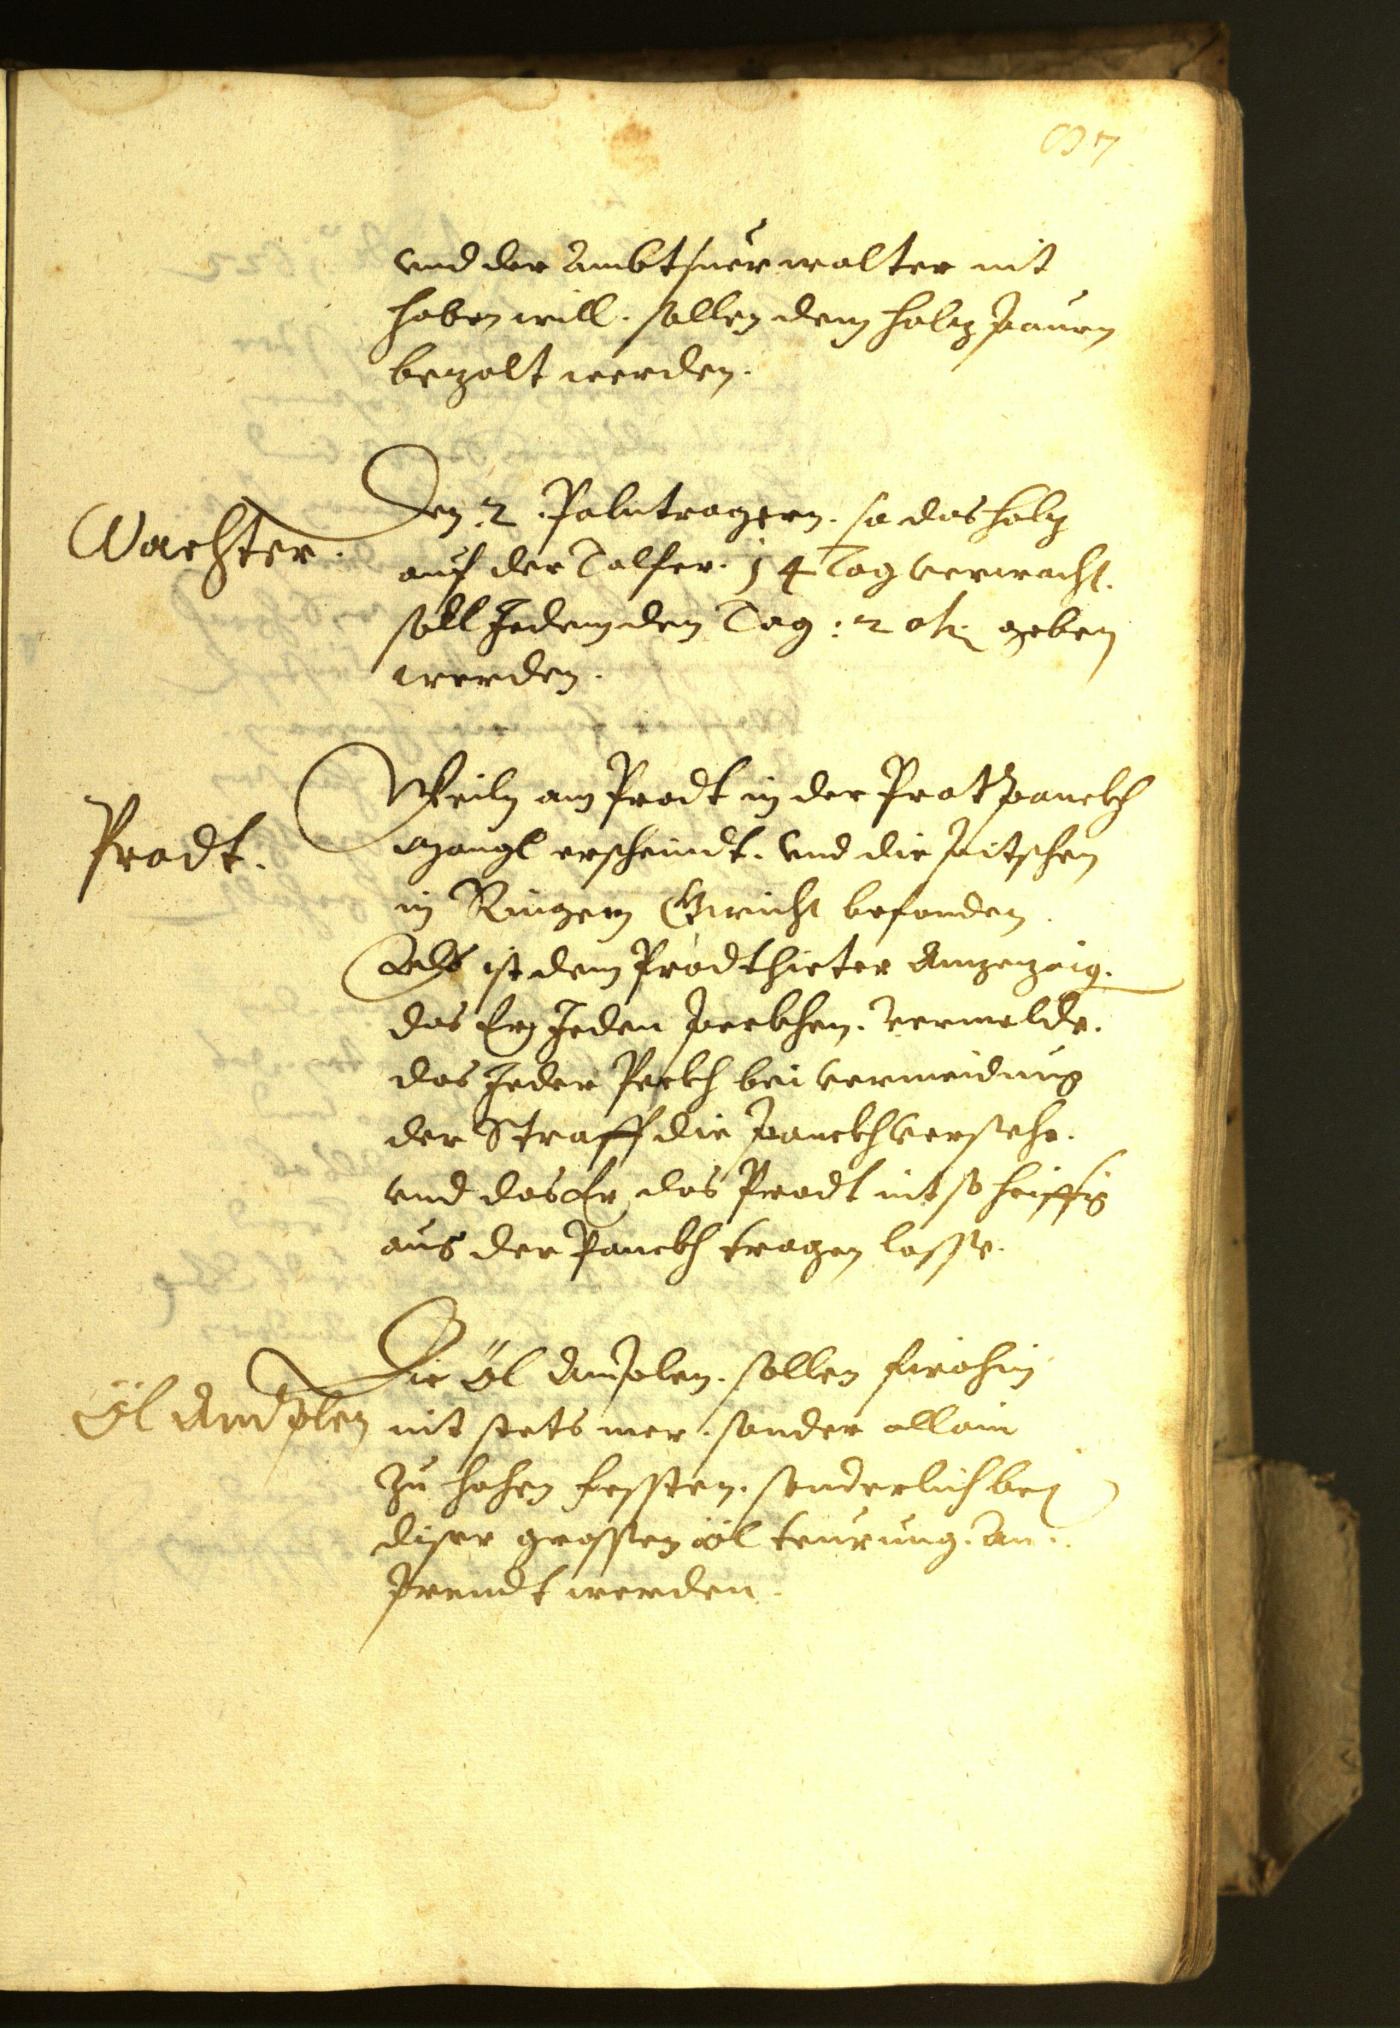 97
vnd der Ambtsuerwalter nit
haben will. sollen dem holz paurn
bezalt werden.
Wachter.
Den 2 Palntragern. so das holz
auf der Talfer. 14 Tag verwacht.
soll Jedem den Tag: 2 geben
werden.
Prodt.
Weiln am Prodt in der Prot panckh
mangl erscheindt. vnd die pitschen
in Ringem Gwicht befonden.
Als ist dem Prodthieter Anzenzaig.
das Er Jeden peckhen. vermelde.
das Jeder Peckh bei vermeidung
der Straff die panckh versehe.
vnd das Er das Prodt nit so heiffig
aus der Panckh tragen lasse.
Öl Amplen
Die öl Amplen. sollen firohin
nit stets mer. sonder allain
zu hohen fessten. sonderlich bej
diser grossen öl teurung. An-
prendt werden.